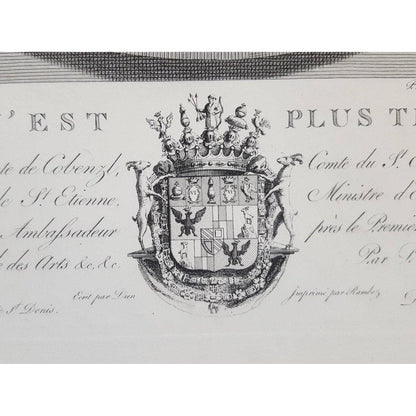 'EST PLUS T
te de Cobenzl, Comte du St
de St. Etienne, Ministre d'
Ambassadeur près le Premier
des Arts &c, &c. Par
Ecrit par Dien Imprimé par Ramboz
St. Denis.